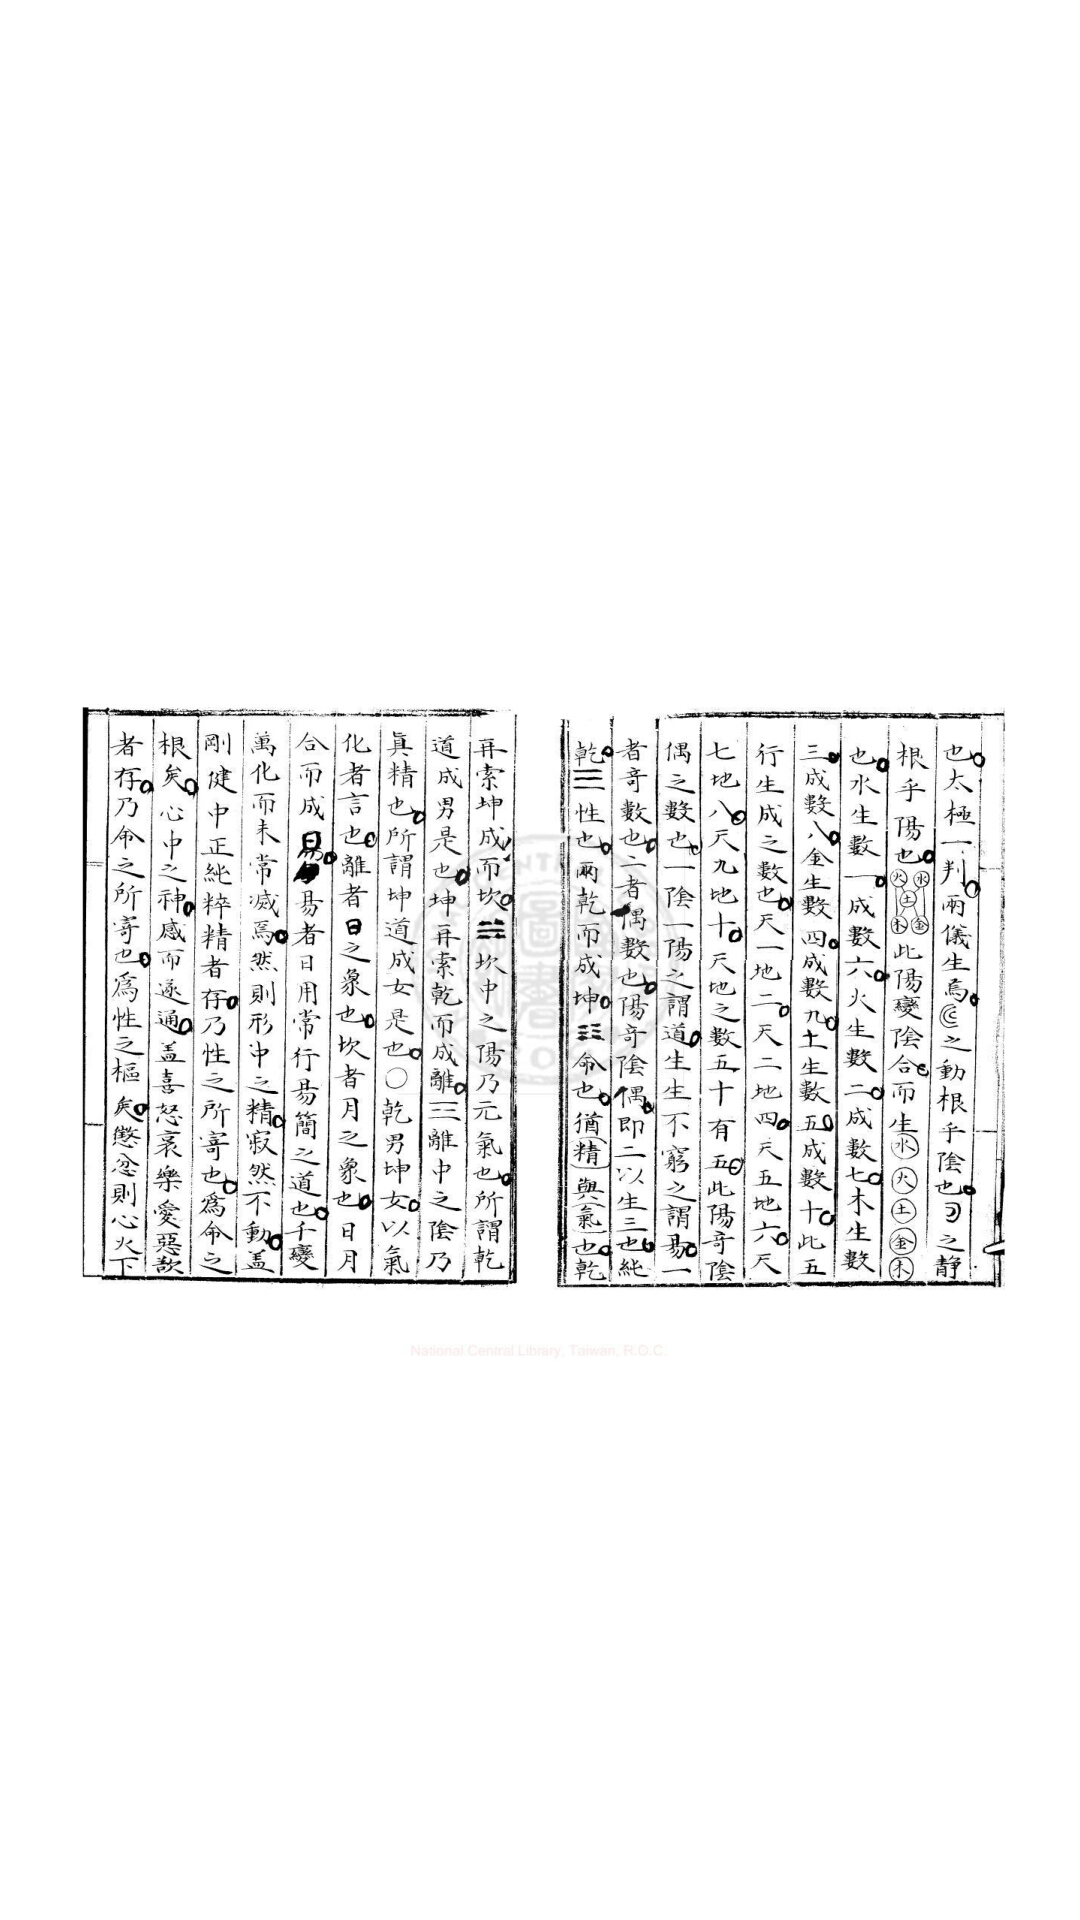 也太極一判兩儀生焉之動根乎陰也之靜
根乎陽也水火土金木此陽變陰合而生水火土金木
也水生數一成數六火生數二成數七木生數
三成數八金生數四成數九土生數五成數十此五
行生成之數也天一地二天三地四天五地六天
七地八天九地十天地之數五十有五此陽奇陰
偶之數也一陰一陽之謂道生生不窮之謂易一
者奇數也二者偶數也陽奇陰偶即二以生三也純
乾☰性也兩乾而成坤☷命也猶精與氣也乾
再索坤成而坎☵坎中之陽乃元氣也所謂乾
道成男是也坤再索乾而成離☲離中之陰乃
真精也所謂坤道成女是也○乾男坤女以氣
化者言也離者日之象也坎者月之象也日月
合而成易易者日用常行易簡之道也千變
萬化而未常滅焉然則形中之精寂然不動盖
剛健中正純粹精者存乃性之所寄也為命之
根矣心中之神感而遂通盖喜怒哀樂愛惡欲
者存乃命之所寄也為性之樞矣懲忿則心火下
National Central Library, Taiwan, R.O.C.